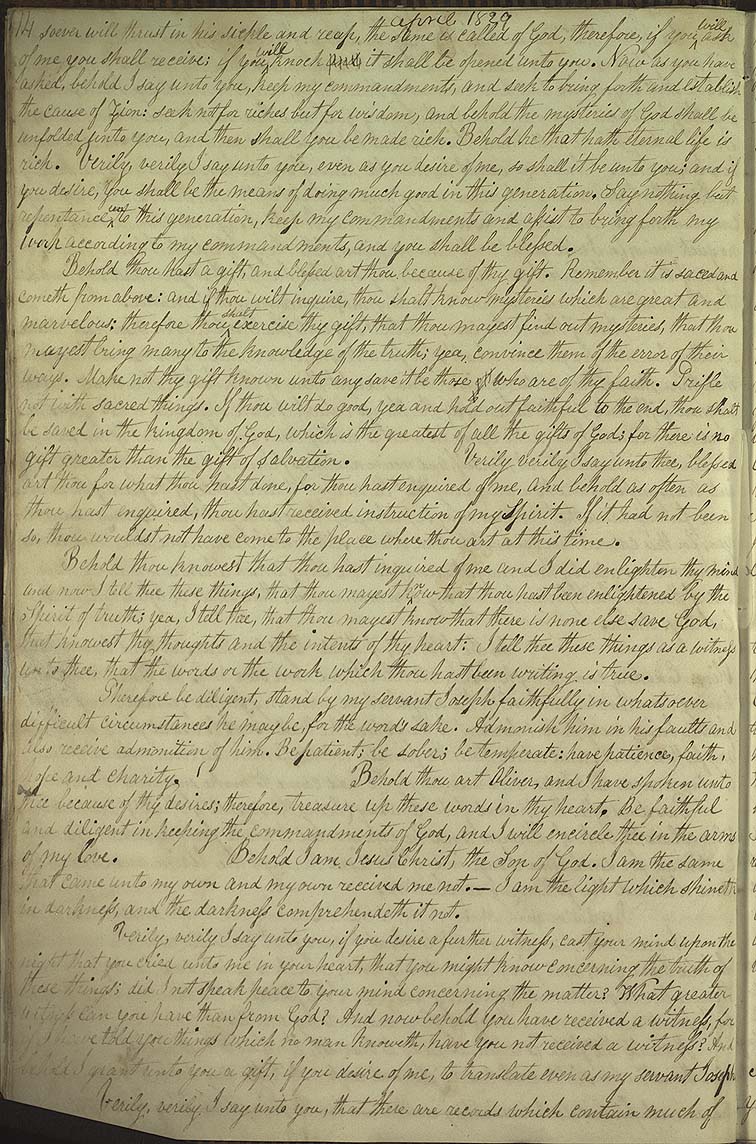 April 1829
14 soever will thrust in his sickle and reap, the same is called of God, therefore, if you will ask
of me you shall receive; if you will knock it shall be opened unto you. Now as you have
asked, behold I say unto you, keep my commandments, and seek to bring forth and establish
the cause of Zion: seek not for riches but for wisdom, and behold the mysteries of God shall be
unfolded unto you, and then shall you be made rich. Behold he that hath eternal life is
rich. Verily, verily I say unto you, even as you desire of me, so shall it be unto you; and if
you desire, you shall be the means of doing much good in this generation. Say nothing but
repentance unto this generation, keep my commandments and assist to bring forth my
work according to my commandments, and you shall be blessed.
Behold thou hast a gift, and blessed art thou because of thy gift. Remember it is sacred and
cometh from above: and if thou wilt inquire, thou shalt know mysteries which are great and
marvelous: therefore thou shalt exercise thy gift, that thou mayest find out mysteries, that thou
mayest bring many to the knowledge of the truth; yea, convince them of the error of their
ways. Make not thy gift known unto any save it be those who are of thy faith. Trifle
not with sacred things. If thou wilt do good, yea and hold out faithful to the end, thou shalt
be saved in the kingdom of God, which is the greatest of all the gifts of God; for there is no
gift greater than the gift of salvation. Verily verily I say unto thee, blessed
art thou for what thou hast done, for thou hast enquired of me, and behold as often as
thou hast inquired, thou hast received instruction of my Spirit. If it had not been
so, thou wouldst not have come to the place where thou art at this time.
Behold thou knowest that thou hast inquired of me and I did enlighten thy mind
and now I tell thee these things, that thou mayest know that thou hast been enlightened by the
Spirit of truth; yea, I tell thee, that thou mayest know that there is none else save God,
that knowest thy thoughts and the intents of thy heart: I tell thee these things as a witness
unto thee, that the words or the work which thou hast been writing is true.
Therefore be diligent, stand by my servant Joseph faithfully in whatsoever
difficult circumstances he may be, for the word's sake. Admonish him in his faults and
also receive admonition of him. Be patient; be sober; be temperate: have patience, faith,
hope and charity. Behold thou art Oliver, and I have spoken unto
thee because of thy desires; therefore, treasure up these words in thy heart. Be faithful
and diligent in keeping the commandments of God, and I will encircle thee in the arms
of my love. Behold I am Jesus Christ, the Son of God. I am the same
that came unto my own and my own received me not. — I am the light which shineth
in darkness, and the darkness comprehendeth it not.
Verily, verily I say unto you, if you desire a further witness, cast your mind upon the
night that you cried unto me in your heart, that you might know concerning the truth of
these things; did I not speak peace to your mind concerning the matter? What greater
witness can you have than from God? And now behold you have received a witness, for
if I have told you things which no man knoweth, have you not received a witness? And
behold I grant unto you a gift, if you desire of me, to translate even as my servant Joseph
Verily, verily I say unto you, that there are records which contain much of